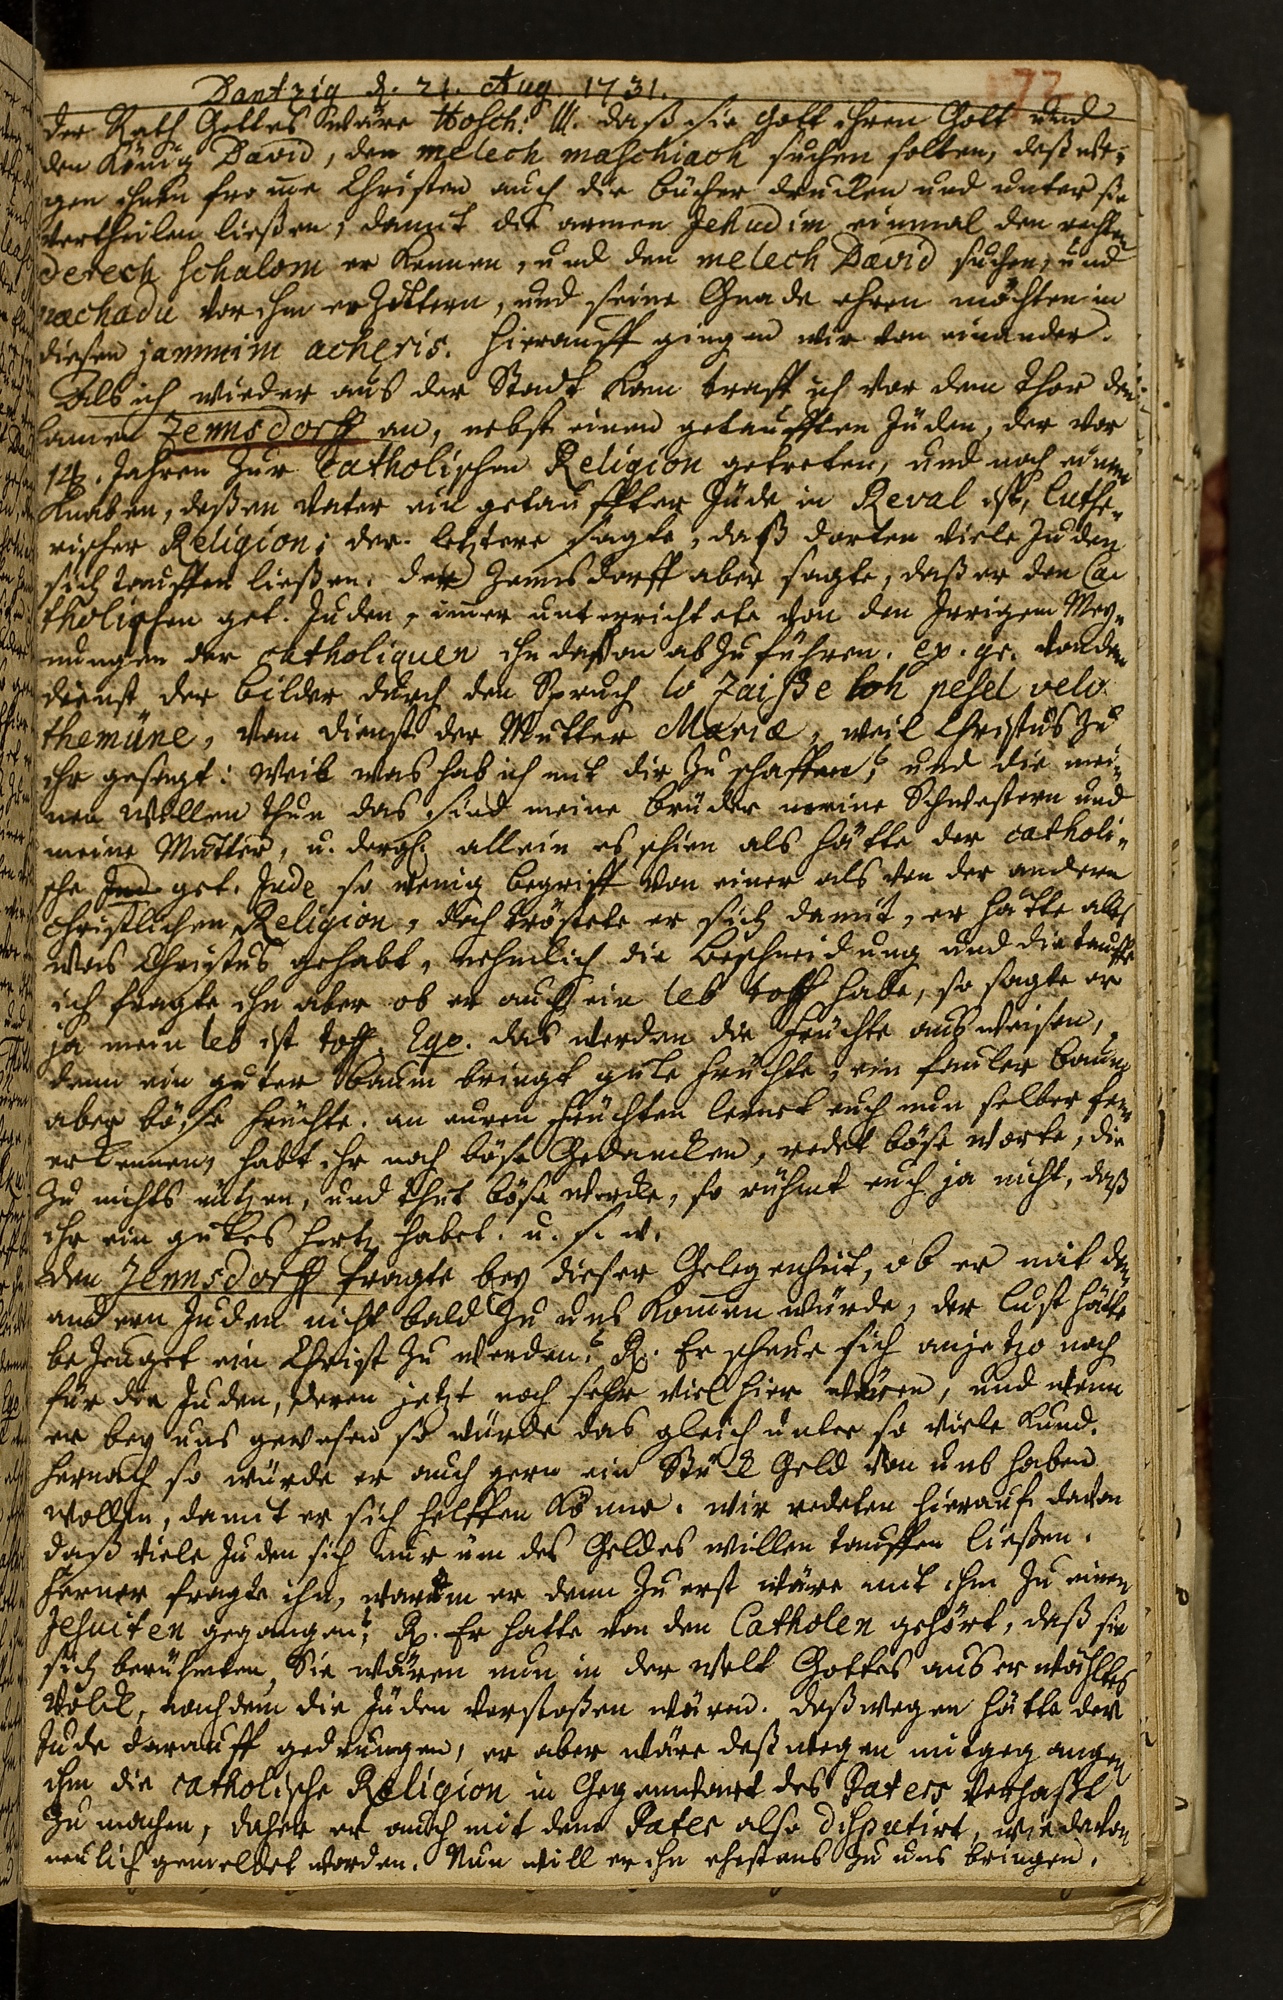 Dantzig d. 21. Aug. 1731.
72.
der Rath Gottes wäre Hosch: III. daß sie Gott ihren Gott und
den König David, den melech maschiach suchen solten, deßwe-
gen ihnen frome Christen auch die bücher drucken und unter sie
vertheilen ließen, damit die armen Jehudim einmal den rechten
derech schalom er kennen, und den melech David suchen, und
pachadu vor ihm erzittern, und seine Gnade ehren möchten in
diesen jammim acheris. hierauff gingen wir von einander.
Als ich wieder aus der Stadt kam traff ich vor dem thor den
lamen Zemsdorff an, nebst einen getaufften Jüden, der vor
14. Jahren zur Catholischen Religion getreten, und noch einen
Knaben, deßen Vater ein getauffter Jüde in Reval ist, Luthe-
rischer Religion; der letztere sagte, daß dorten viele Juden
sich tauffen ließen. der Zemsdorff aber sagte, daß er den Ca
tholischen get. Juden, imer unterrichtete von den Irrigen Mey-
nungen der catholiquen ihn davon abzuführen. ex. gr. von dem
dienst der bilder durch den Spruch lo zaiße loh pesel velo
themune, vom dienst der Mutter Mariæ, weil Christus zu
ihr gesagt: Weib was hab ich mit dir zu schaffen? und die mei-
nen willen thun das sind meine brüder meine Schwestern und
meine Mutter, u. dergl. allein es schien als hätte der catholi-
sche Jud get. Jude so wenig begriff von einer als von der andern
christlichen Religion, doch tröstete er sich damit, er hätte alles
was Christus gehabt, nehmlich die beschneidung und die tauffe
ich fragte ihn aber ob er auch ein leb toff habe, so sagte er
ja mein leb ist toff. Ego. das werden die früchte ausweisen,
denn ein guter baum bringt gute früchte, ein fauler baum
aber böse früchte. an euren früchten lernet euch nun selber
erkennen, habt ihr noch böse Gedancken, redet böse worte, die
zu nichts nützen, und thut böse wercke, so rühmt euch ja nicht, daß
ihr ein gutes hertz habet. u. s. w.
den Zemsdorff fragte bey dieser Gelegenheit, ob er mit dem
andern Juden nicht bald zu uns komen würde, der lust hätte
bezeuget ein Christ zu werden? Rx. Er scheue sich anjetzo noch
für die Juden, deren jetzt noch sehr viel hier wären, und wenn
er bey uns gewesen so würde das gleich unter so viele kund.
hernach so würde er auch gern ein Stück Geld von uns haben
wollen, damit er sich helffen könne. wir redeten hierauf davon
daß viele Juden sich nur um des Geldes willen tauffen ließen.
ferner fragte ihn, warum er denn zu erst wäre mit ihm zu einen
Jesuiten gegangen? Rx. Er hatte von den Catholen gehört, daß sie
sich berühmten, Sie wären nun in der welt Gottes auserwähltes
Volck, nachdem die Jüden verstoßen wären. deßwegen hätte der
Jude darauff gedrungen, er aber wäre deßwegen mitgegangen
ihm die catholische Religion in Gegenwart des Paters verhaßt
zu machen, daher er auch mit dem Pater also disputirt, wie davon
neulich gemeldet worden. Nun will er ihn ehestens zu uns bringen.